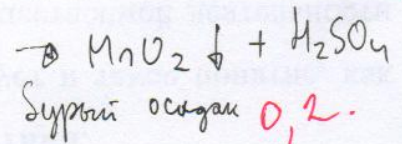 → MnO₂ ↓ + H₂SO₄
Бурый осадок 0,2.